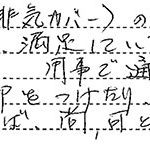 排気カバー)の
満足してい
用事で通
印をつけたり、
ば、尚、可と